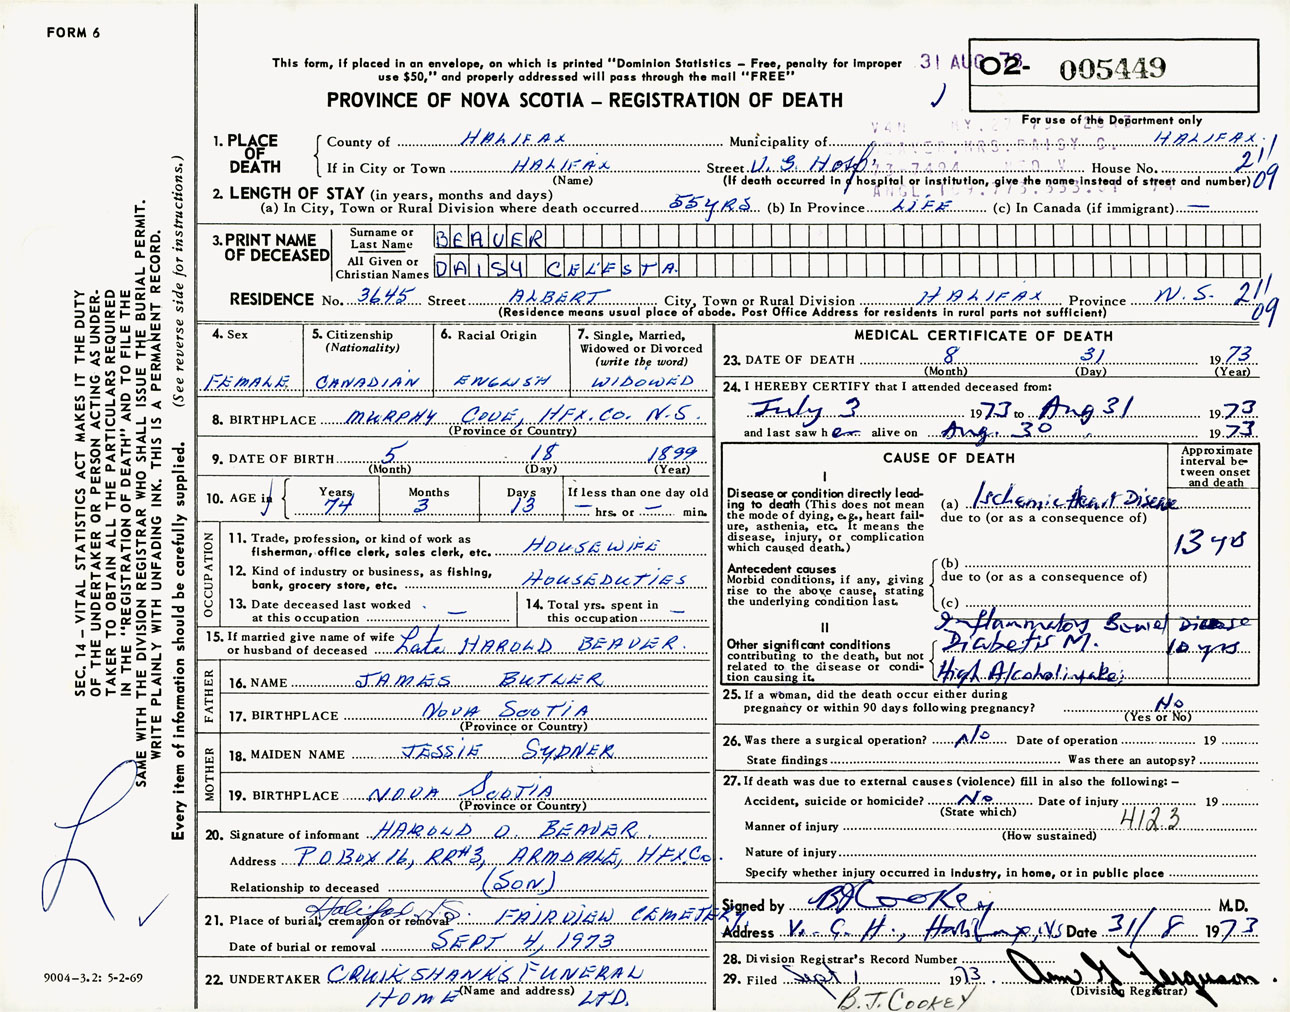 FORM 6
This form, if placed in an envelope, on which is printed "Dominion Statistics – Free, penalty for improper
use $50," and properly addressed will pass through the mail "FREE"
31 AUG 73
02- 005449
PROVINCE OF NOVA SCOTIA – REGISTRATION OF DEATH
For use of the Department only
1. PLACE OF DEATH
County of HALIFAX Municipality of HALIFAX
If in City or Town HALIFAX Street V. G. Hosp. House No.
211
09
(Name) (If death occurred in a hospital or institution, give the name instead of street and number)
2. LENGTH OF STAY (in years, months and days)
(a) In City, Town or Rural Division where death occurred 55 YRS (b) In Province LIFE (c) In Canada (if immigrant) —
3. PRINT NAME OF DECEASED
Surname or Last Name BEAVER
All Given or Christian Names DAISY CELESTA
RESIDENCE No. 3645 Street ALBERT City, Town or Rural Division HALIFAX Province N.S. 211
09
(Residence means usual place of abode. Post Office Address for residents in rural parts not sufficient)
4. Sex FEMALE
5. Citizenship (Nationality) CANADIAN
6. Racial Origin ENGLISH
7. Single, Married, Widowed or Divorced (write the word) WIDOWED
8. BIRTHPLACE MURPHY COVE, HFX.CO. N.S.
(Province or Country)
9. DATE OF BIRTH 5 18 1899
(Month) (Day) (Year)
10. AGE in Years 74 Months 3 Days 13 If less than one day old — hrs. or — min.
OCCUPATION
11. Trade, profession, or kind of work as fisherman, office clerk, sales clerk, etc. HOUSEWIFE
12. Kind of industry or business, as fishing, bank, grocery store, etc. HOUSEDUTIES
13. Date deceased last worked at this occupation —
14. Total yrs. spent in this occupation —
15. If married give name of wife or husband of deceased Late HAROLD BEAVER.
FATHER
16. NAME JAMES BUTLER
17. BIRTHPLACE NOVA SCOTIA
(Province or Country)
MOTHER
18. MAIDEN NAME JESSIE SYDNER
19. BIRTHPLACE NOVA SCOTIA
(Province or Country)
20. Signature of informant HAROLD O. BEAVER
Address P O BOX 16, RR#3, ARMDALE, HFX.Co.
Relationship to deceased (SON)
21. Place of burial, cremation or removal Halifax NS. FAIRVIEW CEMETERY
Date of burial or removal SEPT 4, 1973
22. UNDERTAKER CRUIKSHANKS FUNERAL
HOME (Name and address) LTD.
MEDICAL CERTIFICATE OF DEATH
23. DATE OF DEATH 8 31 1973
(Month) (Day) (Year)
24. I HEREBY CERTIFY that I attended deceased from:
July 3 1973 to Aug 31 1973
and last saw her alive on Aug. 30 1973
CAUSE OF DEATH
Approximate interval between onset and death
I
Disease or condition directly leading to death (This does not mean the mode of dying, e.g., heart failure, asthenia, etc. It means the disease, injury, or complication which caused death.)
(a) Ischemic Heart Disease
due to (or as a consequence of)
13 yrs
Antecedent causes
Morbid conditions, if any, giving rise to the above cause, stating the underlying condition last.
(b)
due to (or as a consequence of)
(c)
II
Other significant conditions contributing to the death, but not related to the disease or condition causing it.
Inflammatory Bowel Disease
Diabetis M. 10 yrs
High Alcohol intake.
25. If a woman, did the death occur either during pregnancy or within 90 days following pregnancy? No
(Yes or No)
26. Was there a surgical operation? No Date of operation 19
State findings Was there an autopsy?
27. If death was due to external causes (violence) fill in also the following: –
Accident, suicide or homicide? No Date of injury 19
(State which)
Manner of injury 4123
(How sustained)
Nature of injury
Specify whether injury occurred in industry, in home, or in public place
Signed by BJ Cookey M.D.
Address V. G. H., NS Date 31/8 1973
28. Division Registrar's Record Number
29. Filed Sept 1 1973 Ann G Ferguson
(Division Registrar)
B.J. COOKEY
SEC. 14 – VITAL STATISTICS ACT MAKES IT THE DUTY
OF THE UNDERTAKER OR PERSON ACTING AS UNDER-
TAKER TO OBTAIN ALL THE PARTICULARS REQUIRED
IN THE "REGISTRATION OF DEATH" AND TO FILE THE
SAME WITH THE DIVISION REGISTRAR WHO SHALL ISSUE THE BURIAL PERMIT.
WRITE PLAINLY WITH UNFADING INK. THIS IS A PERMANENT RECORD.
Every item of information should be carefully supplied. (See reverse side for instructions.)
9004-3.2: 5-2-69